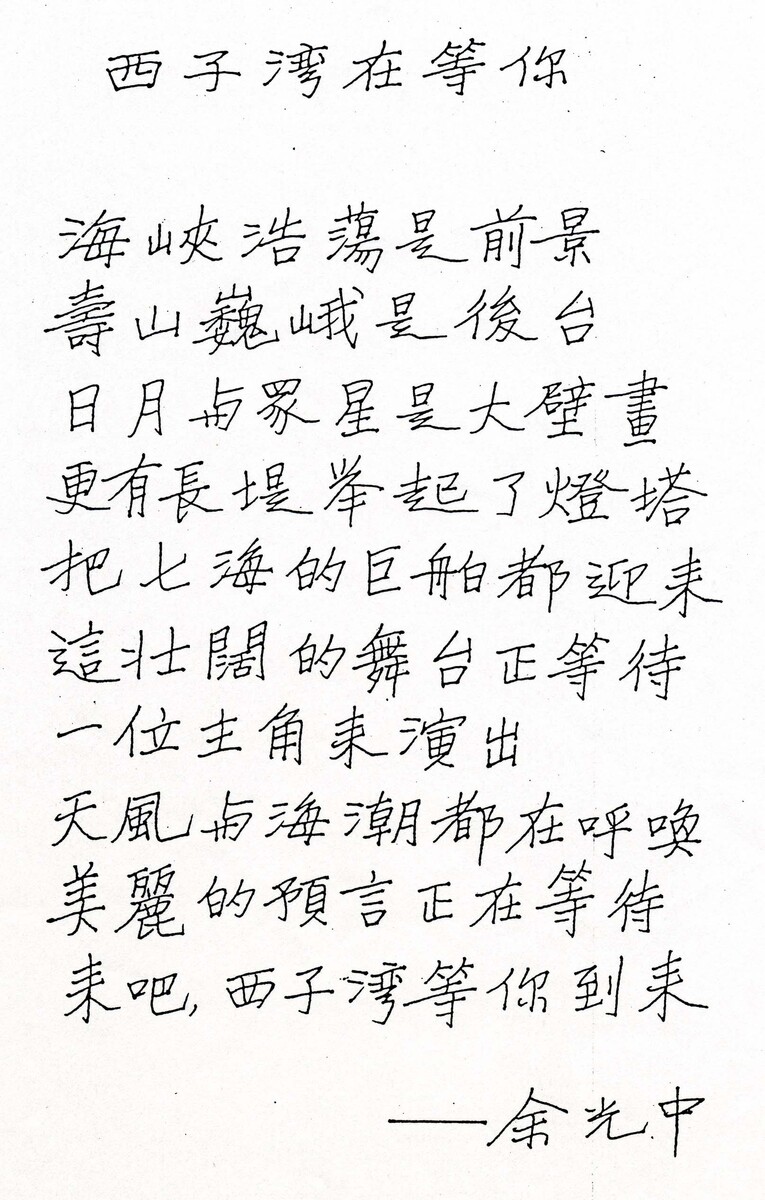 西子湾在等你
海峽浩蕩是前景
壽山巍峨是後台
日月与眾星是大壁畫
更有長堤举起了燈塔
把七海的巨舶都迎来
這壮闊的舞台正等待
一位主角来演出
天風与海潮都在呼喚
美麗的預言正在等待
来吧,西子湾等你到来
——余光中